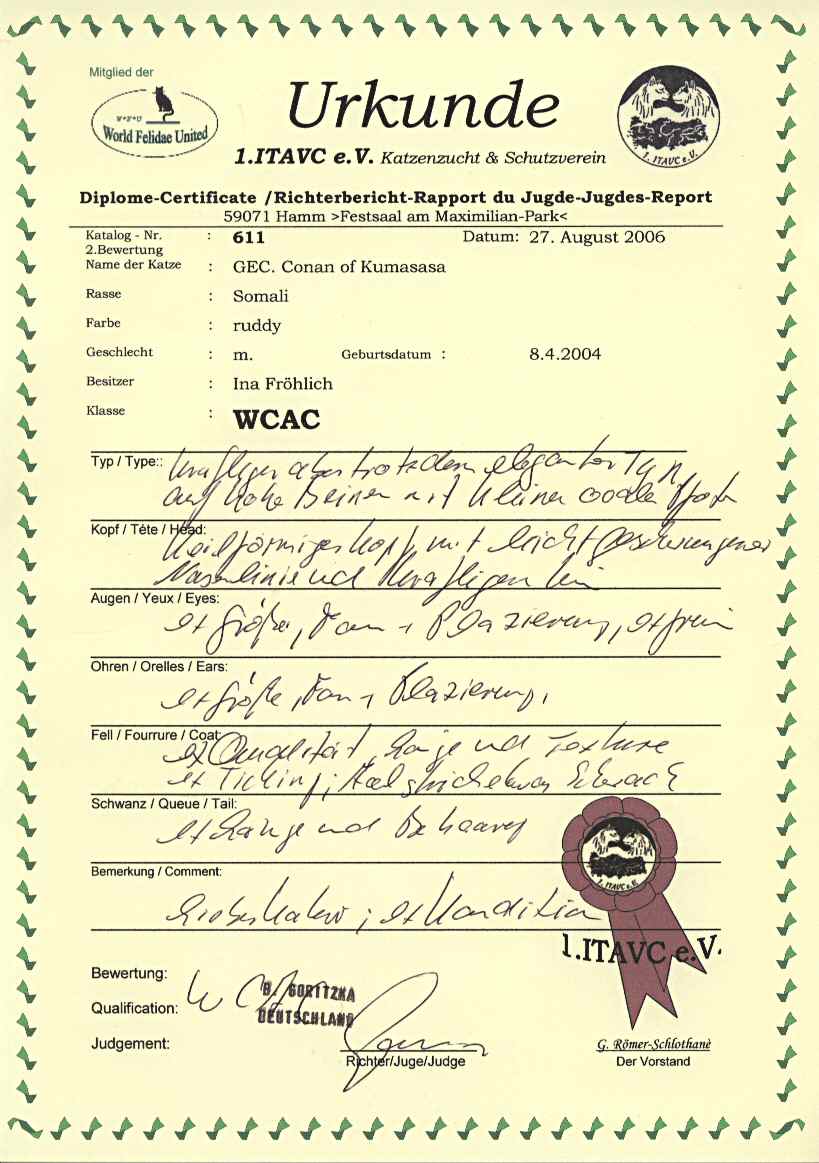 Mitglied der
W•F•U
World Felidae United
Urkunde
1.ITAVC e.V. Katzenzucht & Schutzverein
1. ITAVC e.V.
Diplome-Certificate /Richterbericht-Rapport du Jugde-Jugdes-Report
59071 Hamm >Festsaal am Maximilian-Park<
Katalog - Nr. : 611 Datum: 27. August 2006
2.Bewertung
Name der Katze : GEC. Conan of Kumasasa
Rasse : Somali
Farbe : ruddy
Geschlecht : m. Geburtsdatum : 8.4.2004
Besitzer : Ina Fröhlich
Klasse : WCAC
Typ / Type:: kräftiger aber trotzdem eleganter Typ,
auf hohe Beinen mit kleinen ovalen Pfoten
Kopf / Téte / Head:
Keilförmiger Kopf, mit leicht geschwungener
Nasenlinie und kräftigen Kinn
Augen / Yeux / Eyes:
ex Größe, Form + Plazierung, ex grün
Ohren / Orelles / Ears:
ex Größe, Form + Plazierung,
Fell / Fourrure / Coat:
ex Qualität, Länge und Textur
ex Ticking; Aalstrich etwas
Schwanz / Queue / Tail:
ex Länge und Behaarung
Bemerkung / Comment:
Großer Kater; ex Kondition
1. ITAVC e.V.
1.ITAVC e.V.
Bewertung:
Qualification: WCAC
B. GORITZKA
DEUTSCHLAND
Judgement:
Richter/Juge/Judge
G. Römer-Schlothanè
Der Vorstand